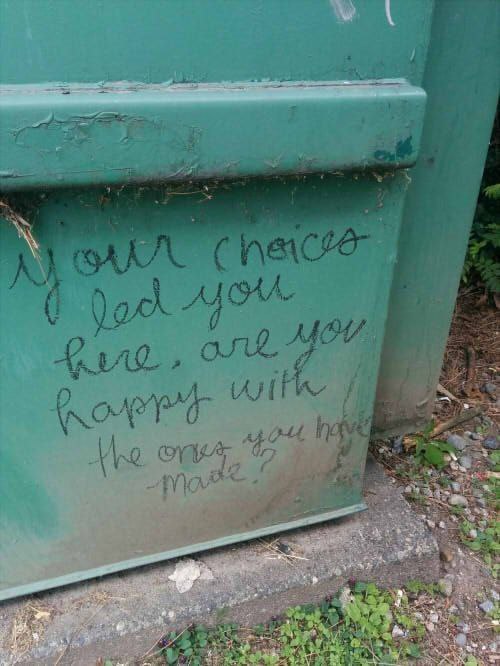 your choices
led you
here. are you
happy with
the ones you have
made?